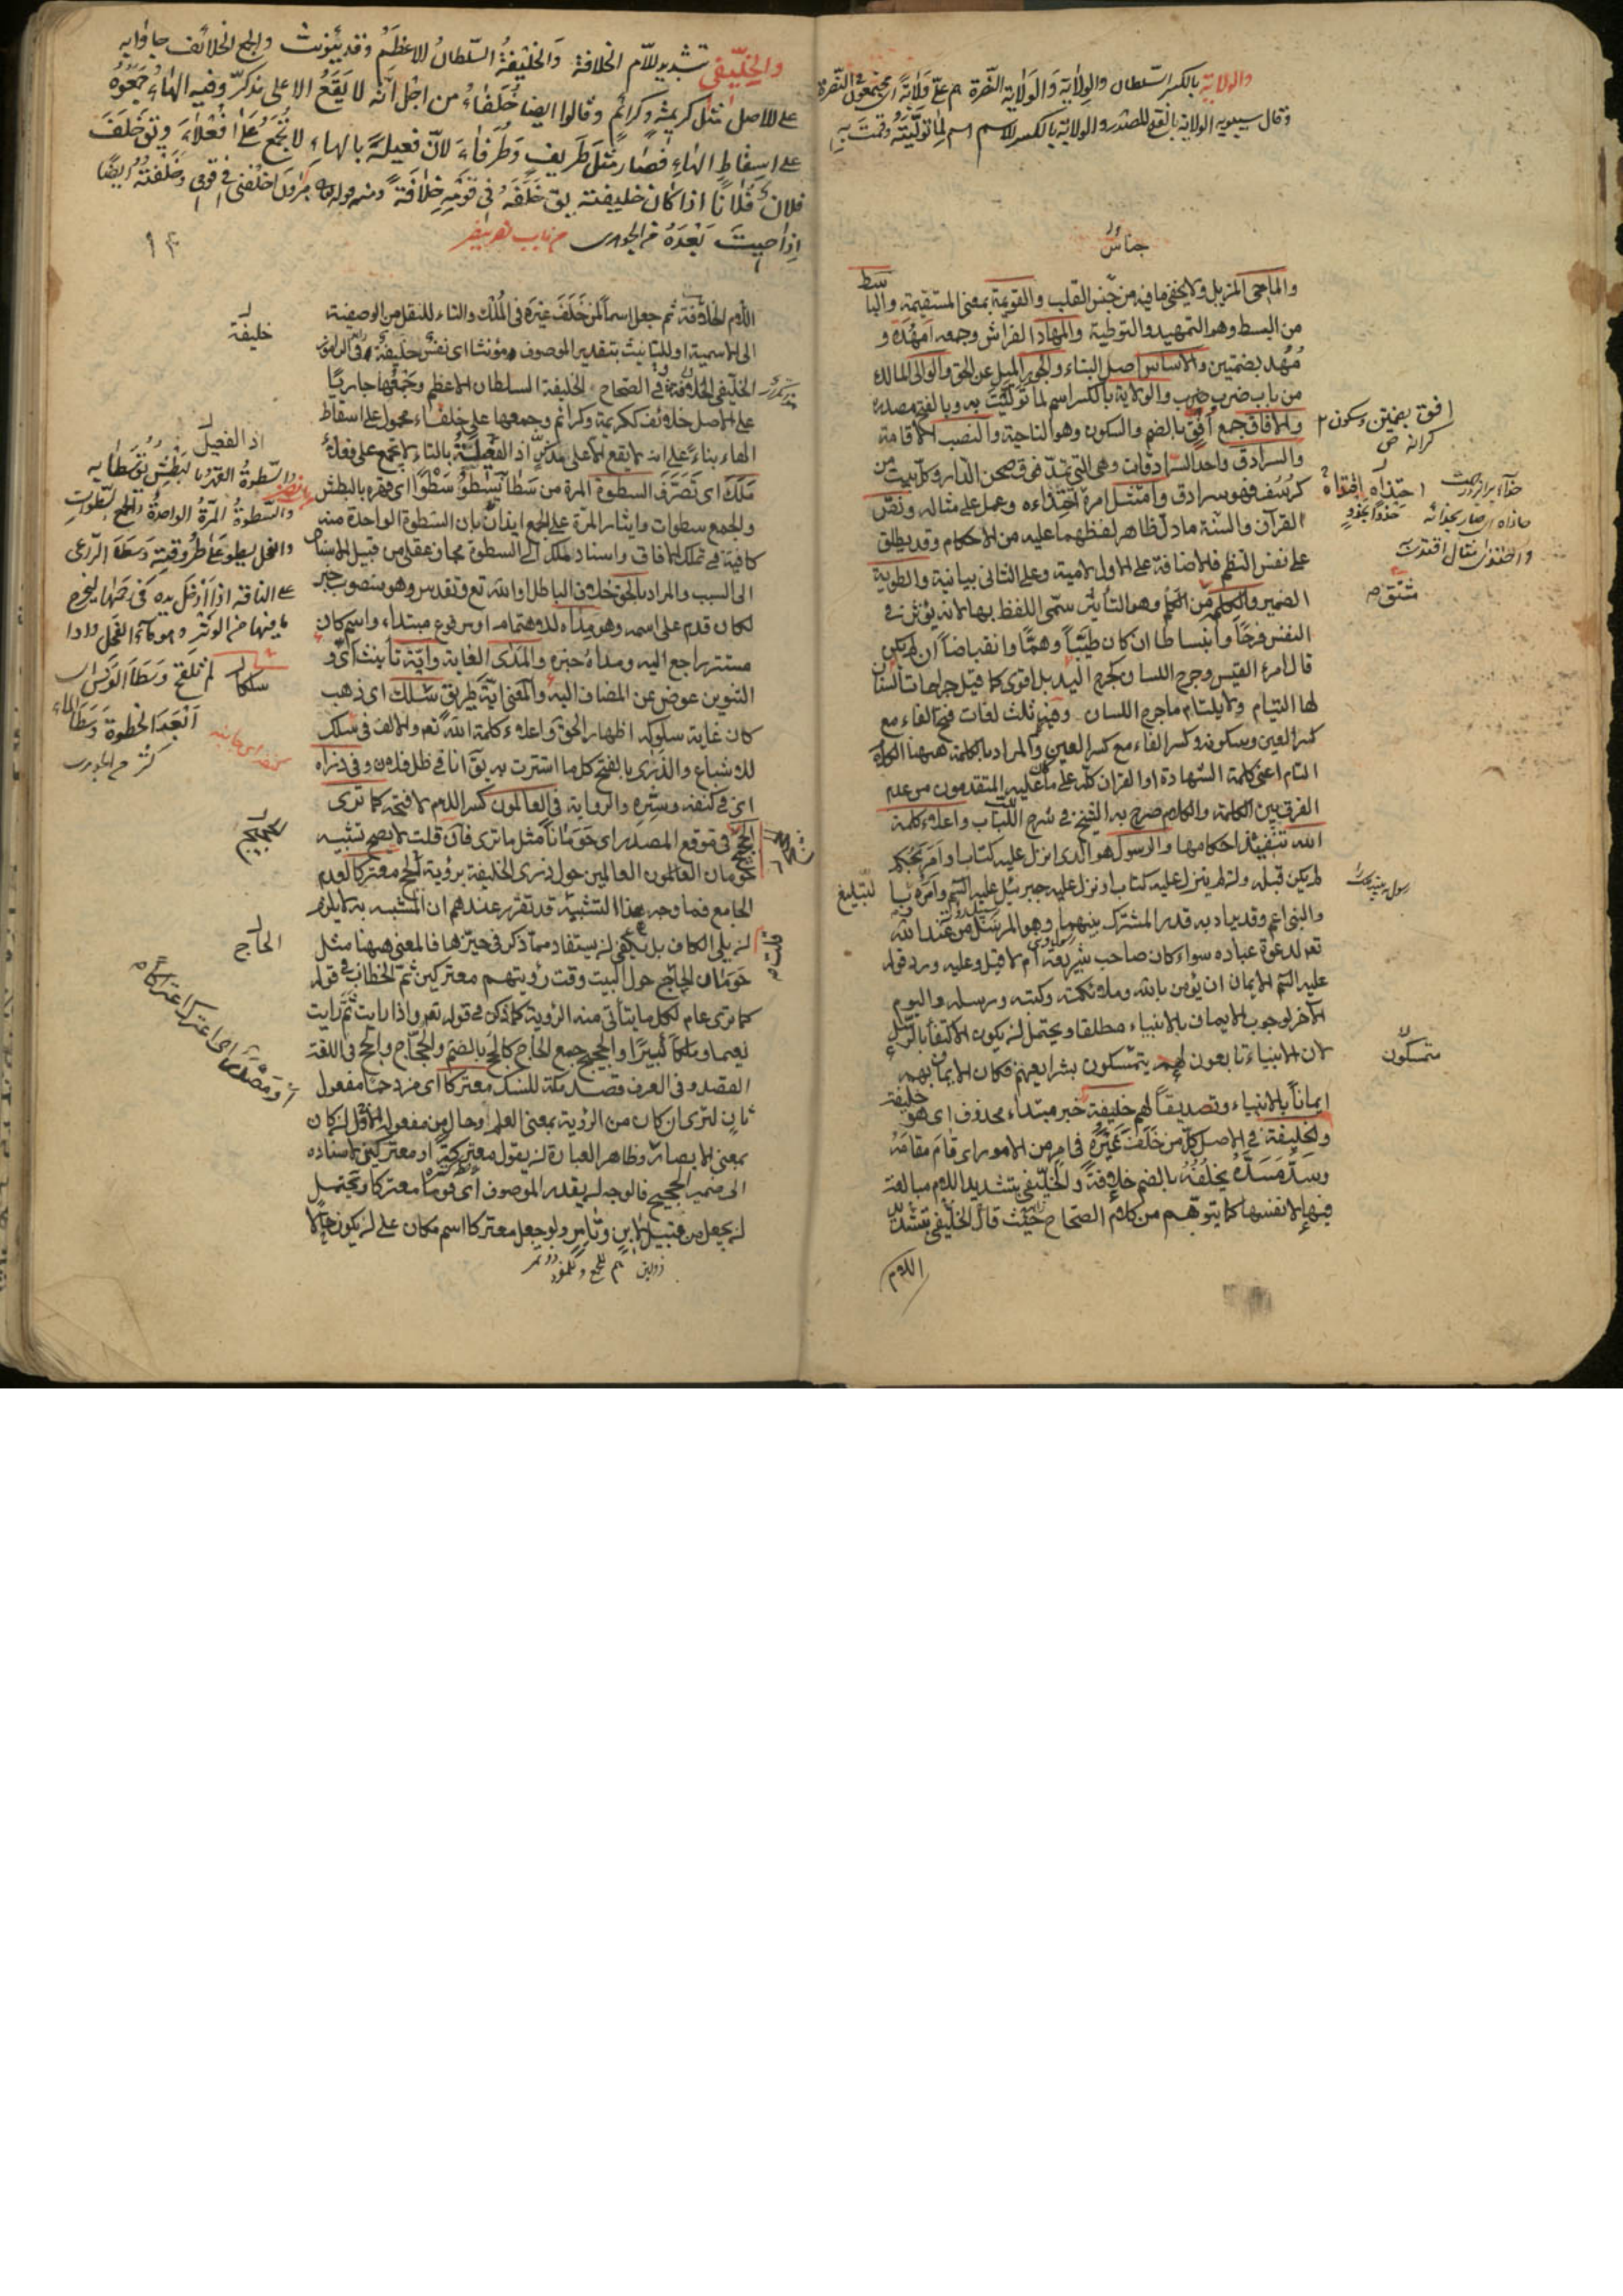 والولاية بالكسر السلطان والولاية والولاية النصرة هم على ولاية اى مجتمعون فى النصرة
وقال سيبويه الولاية بالفتح المصدر والولاية بالكسر الاسم اسم لما توليته وقمت به
جناس
والماحى المزيل ولا يخفى ما فيه من جنس القلب والقويمة بمعنى المستقيمة والباسط
من البسط وهو التمهيد والتوطية والمهاد الفراش وجمعه امهدة و
مُهُد بضمتين والاساس اصل البناء والجور الميل عن الحق والوالى المالك
من باب ضرب والولاية بالكسر اسم لما توليت به وبالفتح مصدر
والافاق جمع افق بالضم والسكون وهو الناحية والنصب الاقامة
والسرادق واحد السرادقات وهى التى تمد فوق صحن الدار وكل بيت من
كرسف فهو سرادق وامتثل امره احتذاه وعمل على مثاله ونص
القرآن والسنة ما دل ظاهر لفظهما عليه من الاحكام وقد يطلق
على نفس النظم فالاضافة على الاول لامية وعلى الثانى بيانية والطوية
الضمير والكلم من الكلم وهو التأثير سمى اللفظ بها لانه يؤثر فى
النفس فرحا وانبساطا ان كان طيبا وهما وانقباضا ان لم يكن
قال امرؤ القيس وجرح اللسان كجرح اليد بل اقوى كما قيل جراحات السنان
لها التيام ولا يلتام ما جرح اللسان وفيه ثلث لغات فتح الفاء مع
كسر العين وبسكونه وكسر الفاء مع كسر العين والمراد بالكلمة ههنا الكلام
التام اعنى كلمة الشهادة او القران كله على ما عليه المتقدمون من عدم
الفرق بين الكلمة والكلام صرح به الشيخ فى شرح اللباب واعلاء كلمة
الله تنفيذ احكامها والرسول هو الذى انزل عليه كتاب او امر بحكم
لم يكن قبله وان لم ينزل عليه كتاب او نزل عليه جبرئيل عليه السم وامره بها للتبليغ
والنبى اعم وقد يراد به قدر المشترك بينهما وهو المرسل من عند الله
تعم لدعوة عباده سواء كان صاحب شريعة ام لا قيل وعليه ورد قوله
عليه السم الايمان ان يؤمن بالله وملائكته وكتبه ورسله واليوم
الآخر لوجوب الايمان بالانبياء مطلقا ويحتمل ان يكون الاكتفاء بالرسل
لان الانبياء تابعون لهم يتمسكون بشرايعهم فكان الايمان بهم
ايمانا بالانبياء وتصديقا لهم خليفة خبر مبتداء محذوف اى هو خليفة
والخليفة فى الاصل كل من خلف غيره فى امر من الامور اى قام مقامه
وسد مسده يخلفه بالضم خلافة والخليفى بتشديد اللام مبالغة
فيها لا نفسها كما يتوهم من كلام الصحاح حيث قال الخليفى بتشديد
اللام
افق بضمتين وسكون
احتذاه اقتداه
متمسكون
والخليفى بتشديد اللام الخلافة والخليفة السلطان الاعظم وقد يؤنث والجمع الخلائف جاؤا به
على الاصل مثل كريمة وكرائم وقالوا ايضا خلفاء من اجل انه لا يقع الا على مذكر وفيه الهاء جمعوه
على اسقاط الهاء فصار مثل ظريف وظرفاء لان فعيلة بالهاء لا تجمع على فعلاء ويق خلف
فلان فلانا اذا كان خليفته يق خلفه فى قومه خلافة ومنه قوله هرون اخلفنى فى قومى وخلفته ايضا
اذا جيت بعده من الجوهرى من باب نصر ينصر
اللام الخلافة ثم جعل اسما لمن خلف غيره فى الملك والتاء للنقل من الوصفية
الى الاسمية او للتانيث بتقدير الموصوف مؤنثا اى نفس خليفة
الخليفى الخلافة وفى الصحاح الخليفة السلطان الاعظم وجمعها جاريا
على الاصل خلائف ككريمة وكرائم وجمعها على خلفاء محمول على اسقاط
الهاء بناء على انه لا يقع الا على مذكر اذ الفعيلة بالتاء لا تجمع على فعلاء
ملك اى تصرف السطوة المرة من سطا يسطو سطوا اى قهره بالبطش
والجمع سطوات وايثار المرة على الجمع ايذان بان السطوة الواحدة منه
كافية فى تملك الافاق واسناد الملك الى السطوة مجاز عقلى من قبيل الاسناد
الى السبب والمراد بالحق خلاف الباطل او الله تع وتقدس وهو منصوب خبر
لكان قدم على اسمه وهو مداه للاهتمام او مرفوع مبتداء واسم كان
مستتر راجع اليه ومداه خبره والمدى الغاية واية تأنيث اى و
التنوين عوض عن المضاف اليه والمعنى اية طريق سلك اى ذهب
كان غاية سلوكه اظهار الحق واعلاء كلمة الله تعم والالف فى سلك
للاشباع والذرى بالفتح كل ما استترت به يق انا فى ظل فلان وفى ذراه
اى فى كنفه وستره والرواية فى العالمون كسر اللام لا فتحه كما ترى
الحج فى موقع المصدر اى حومانا مثل ما ترى فان قلت لا يصح تشبيه
حومان العالمون العالمين حول ذرى الخليفة برؤية الحج معتركا لعدم
الجامع فما وجه هذا التشبيه قد تقرر عندهم ان المشبه به لا يلزم
ان يلى الكاف بل يكفى ان يستفاد مما ذكر فى حيزها فالمعنى ههنا مثل
حومان الحجاج حول البيت وقت رؤيتهم معتركين ثم الخطاب فى قوله
كما ترى عام لكل ما يتأتى منه الرؤية كما ذكر فى قوله تعم واذا رايت ثم رايت
نعيما وملكا كبيرا والحجيج جمع الحاج كالحج بالضم والحجاج والحج فى اللغة
القصد وفى العرف قصد مكة للنسك معتركا اى مزدحما مفعول
ثان لترى ان كان من الرؤية بمعنى العلم او حال من مفعوله الاول ان كان
بمعنى الابصار وظاهر العبارة ان يقول معتركة او معتركين لاسناده
الى ضمير الحجيج فالوجه ان يقدر الموصوف اى قوما معتركا ويحتمل
ان يجعل من قبيل لابن وتامر ولو جعل معتركا اسم مكان على ان يكون حالا
خليفة
اذ الفعيل
والسطوة القهر بالبطش يق سطا به
والسطوة المرة الواحدة والجمع السطوات
والفحل يسطو على طروقته وسطا الراعى
على الناقة اذا ادخل يده فى رحمها ليخرج
ما فيها من الوثر وهو ماء الفحل واذا
لم تلقح وسطا الفرس اى
ابعد الخطوة وسطا الماء
كثر من الجوهرى
سلكا
الحجيج
الحاج